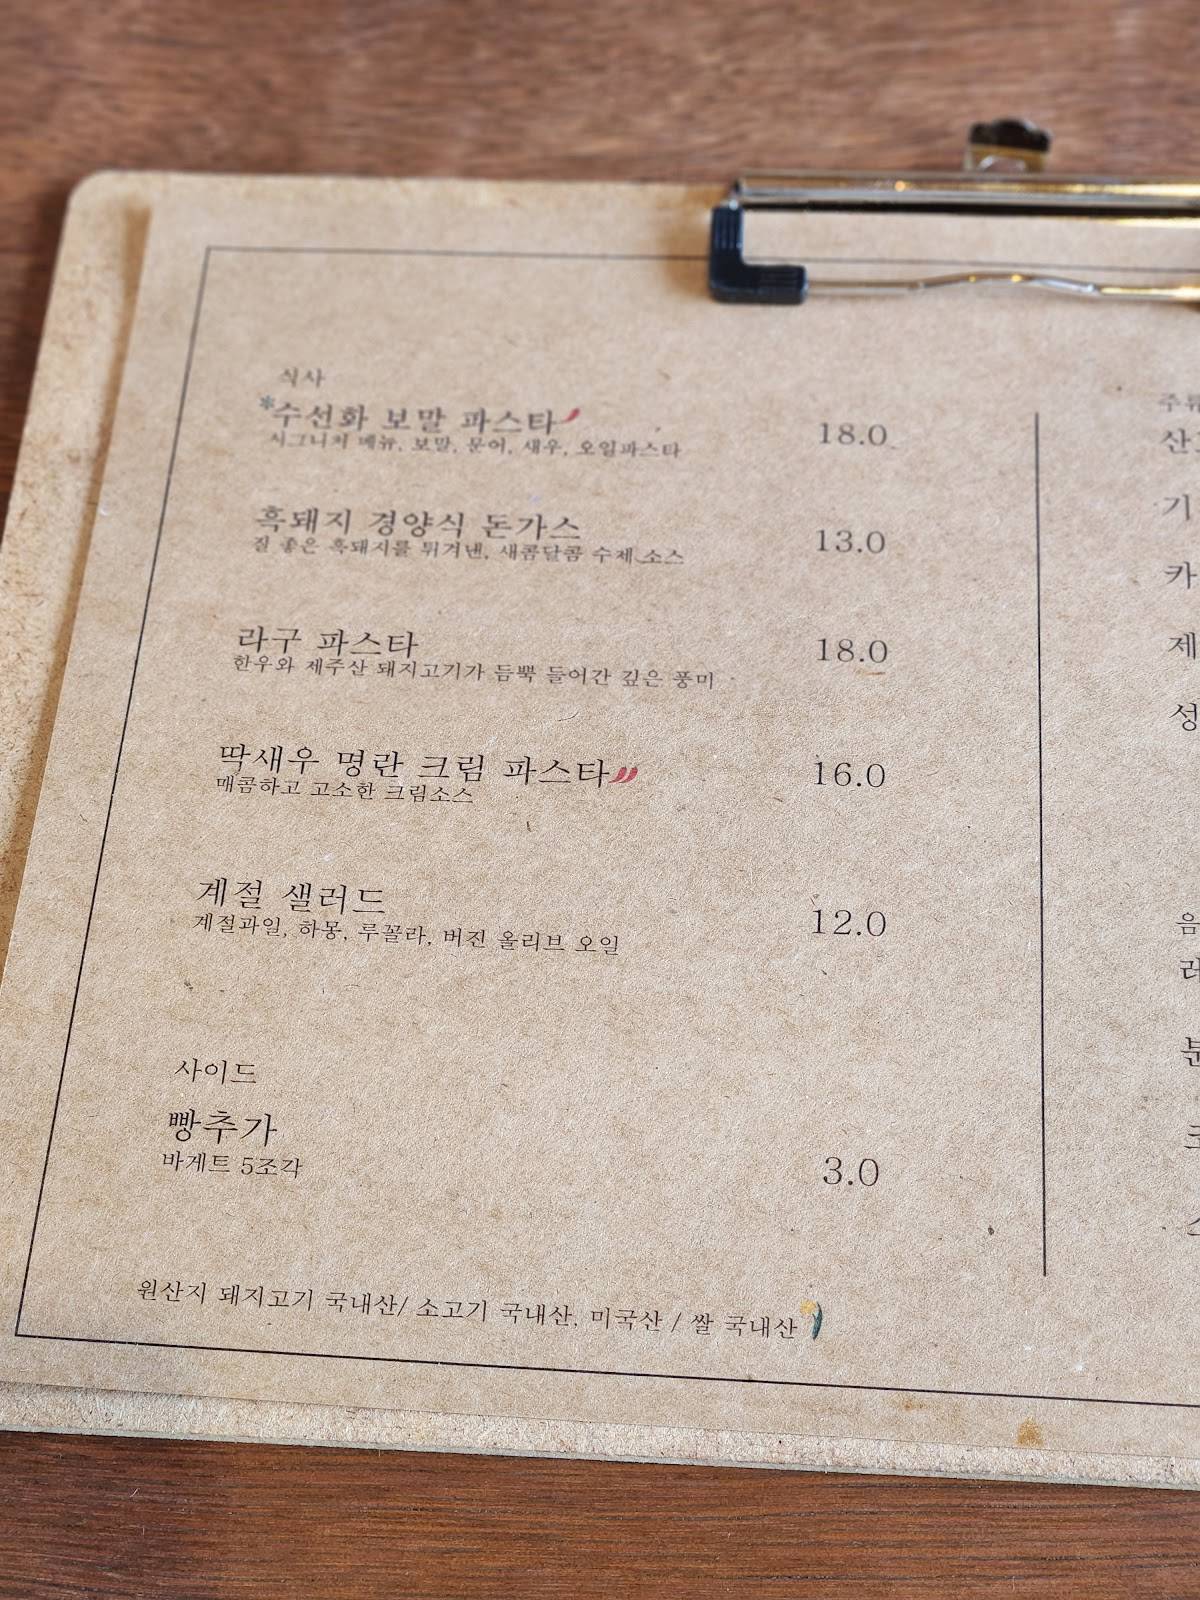 식사
*수선화 보말 파스타
18.0
시그니처 메뉴, 보말, 문어, 새우, 오일파스타
흑돼지 경양식 돈가스
13.0
질 좋은 흑돼지를 튀겨낸, 새콤달콤 수제 소스
라구 파스타
18.0
한우와 제주산 돼지고기가 듬뿍 들어간 깊은 풍미
딱새우 명란 크림 파스타
16.0
매콤하고 고소한 크림소스
계절 샐러드
12.0
계절과일, 하몽, 루꼴라, 버진 올리브 오일
사이드
빵추가
바게트 5조각
3.0
원산지 돼지고기 국내산/ 소고기 국내산, 미국산 / 쌀 국내산
주류
기
카
제
성
음